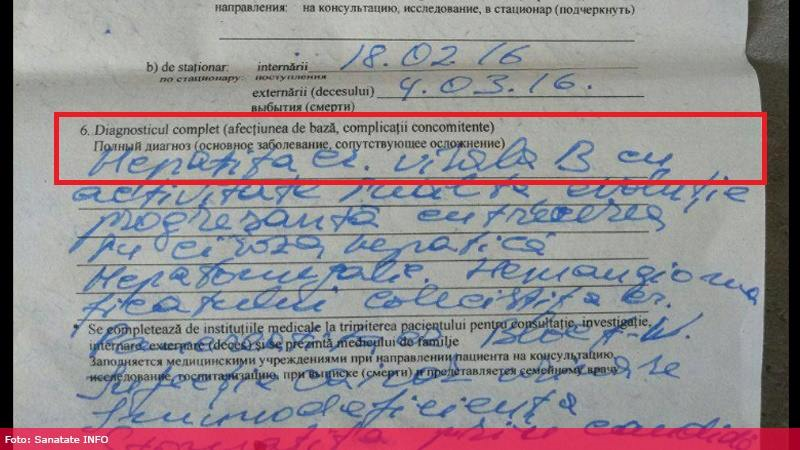 направления: на консультацию, исследование, в стационар (подчеркнуть)
b) de staționar: internării 18.02 16
по стационару: поступления
externării (decesului) 4.03.16.
выбытия (смерти)
6. Diagnosticul complet (afecțiunea de bază, complicații concomitente)
Полный диагноз (основное заболевание, сопутствующее осложнение)
Hepatita cr. virala B cu
activitate inalta evoluție
progresantă cu trecerea
in ciroza hepatică
Hepatomegalie. Hemangioma
ficatului colecistita cr.
* Se completează de instituțiile medicale la trimiterea pacientului pentru consultație, investigație,
internare, externare (deces) și se prezintă medicului de familje
Заполняется медицинскими учреждениями при направлении пациента на консультацию,
исследование, госпитализацию, при выписке (смерти) и представляется семейному врачу
Imunodeficiența
Stomatita prin candida
Foto: Sanatate INFO